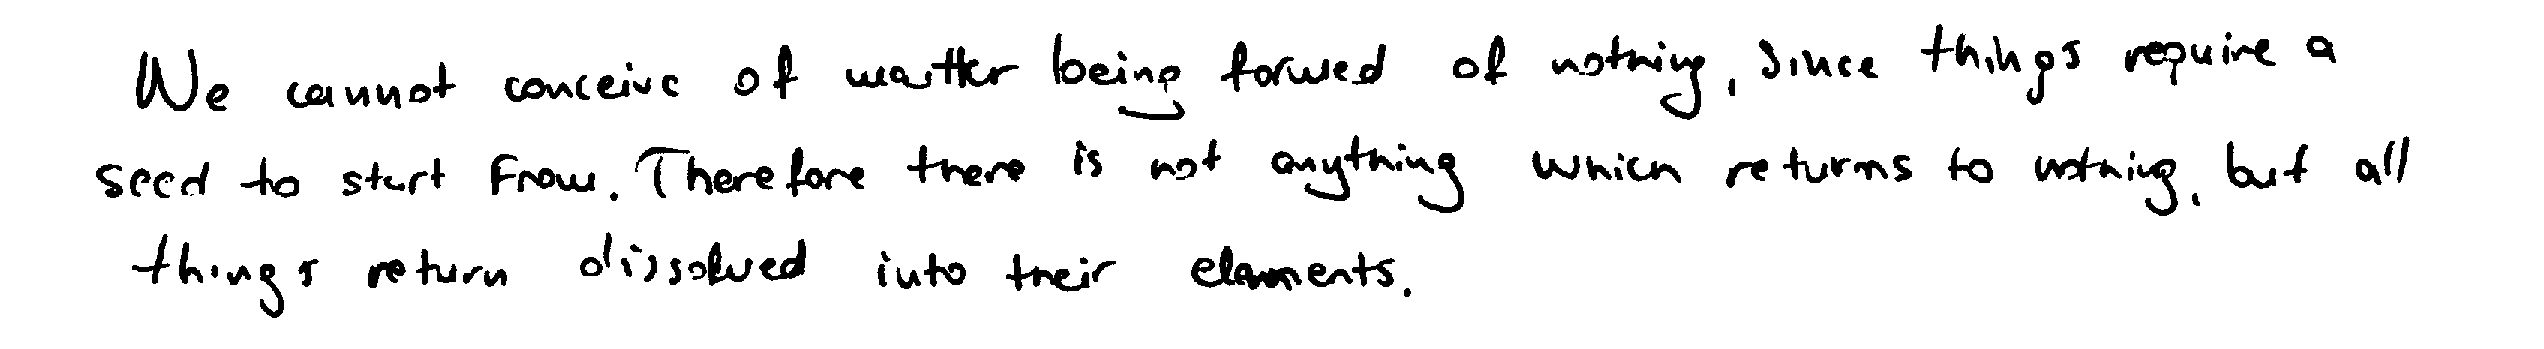 We cannot conceive of matter being formed of nothing, since things require a
seed to start from. Therefore there is not anything which returns to nothing, but all
things return dissolved into their elements.